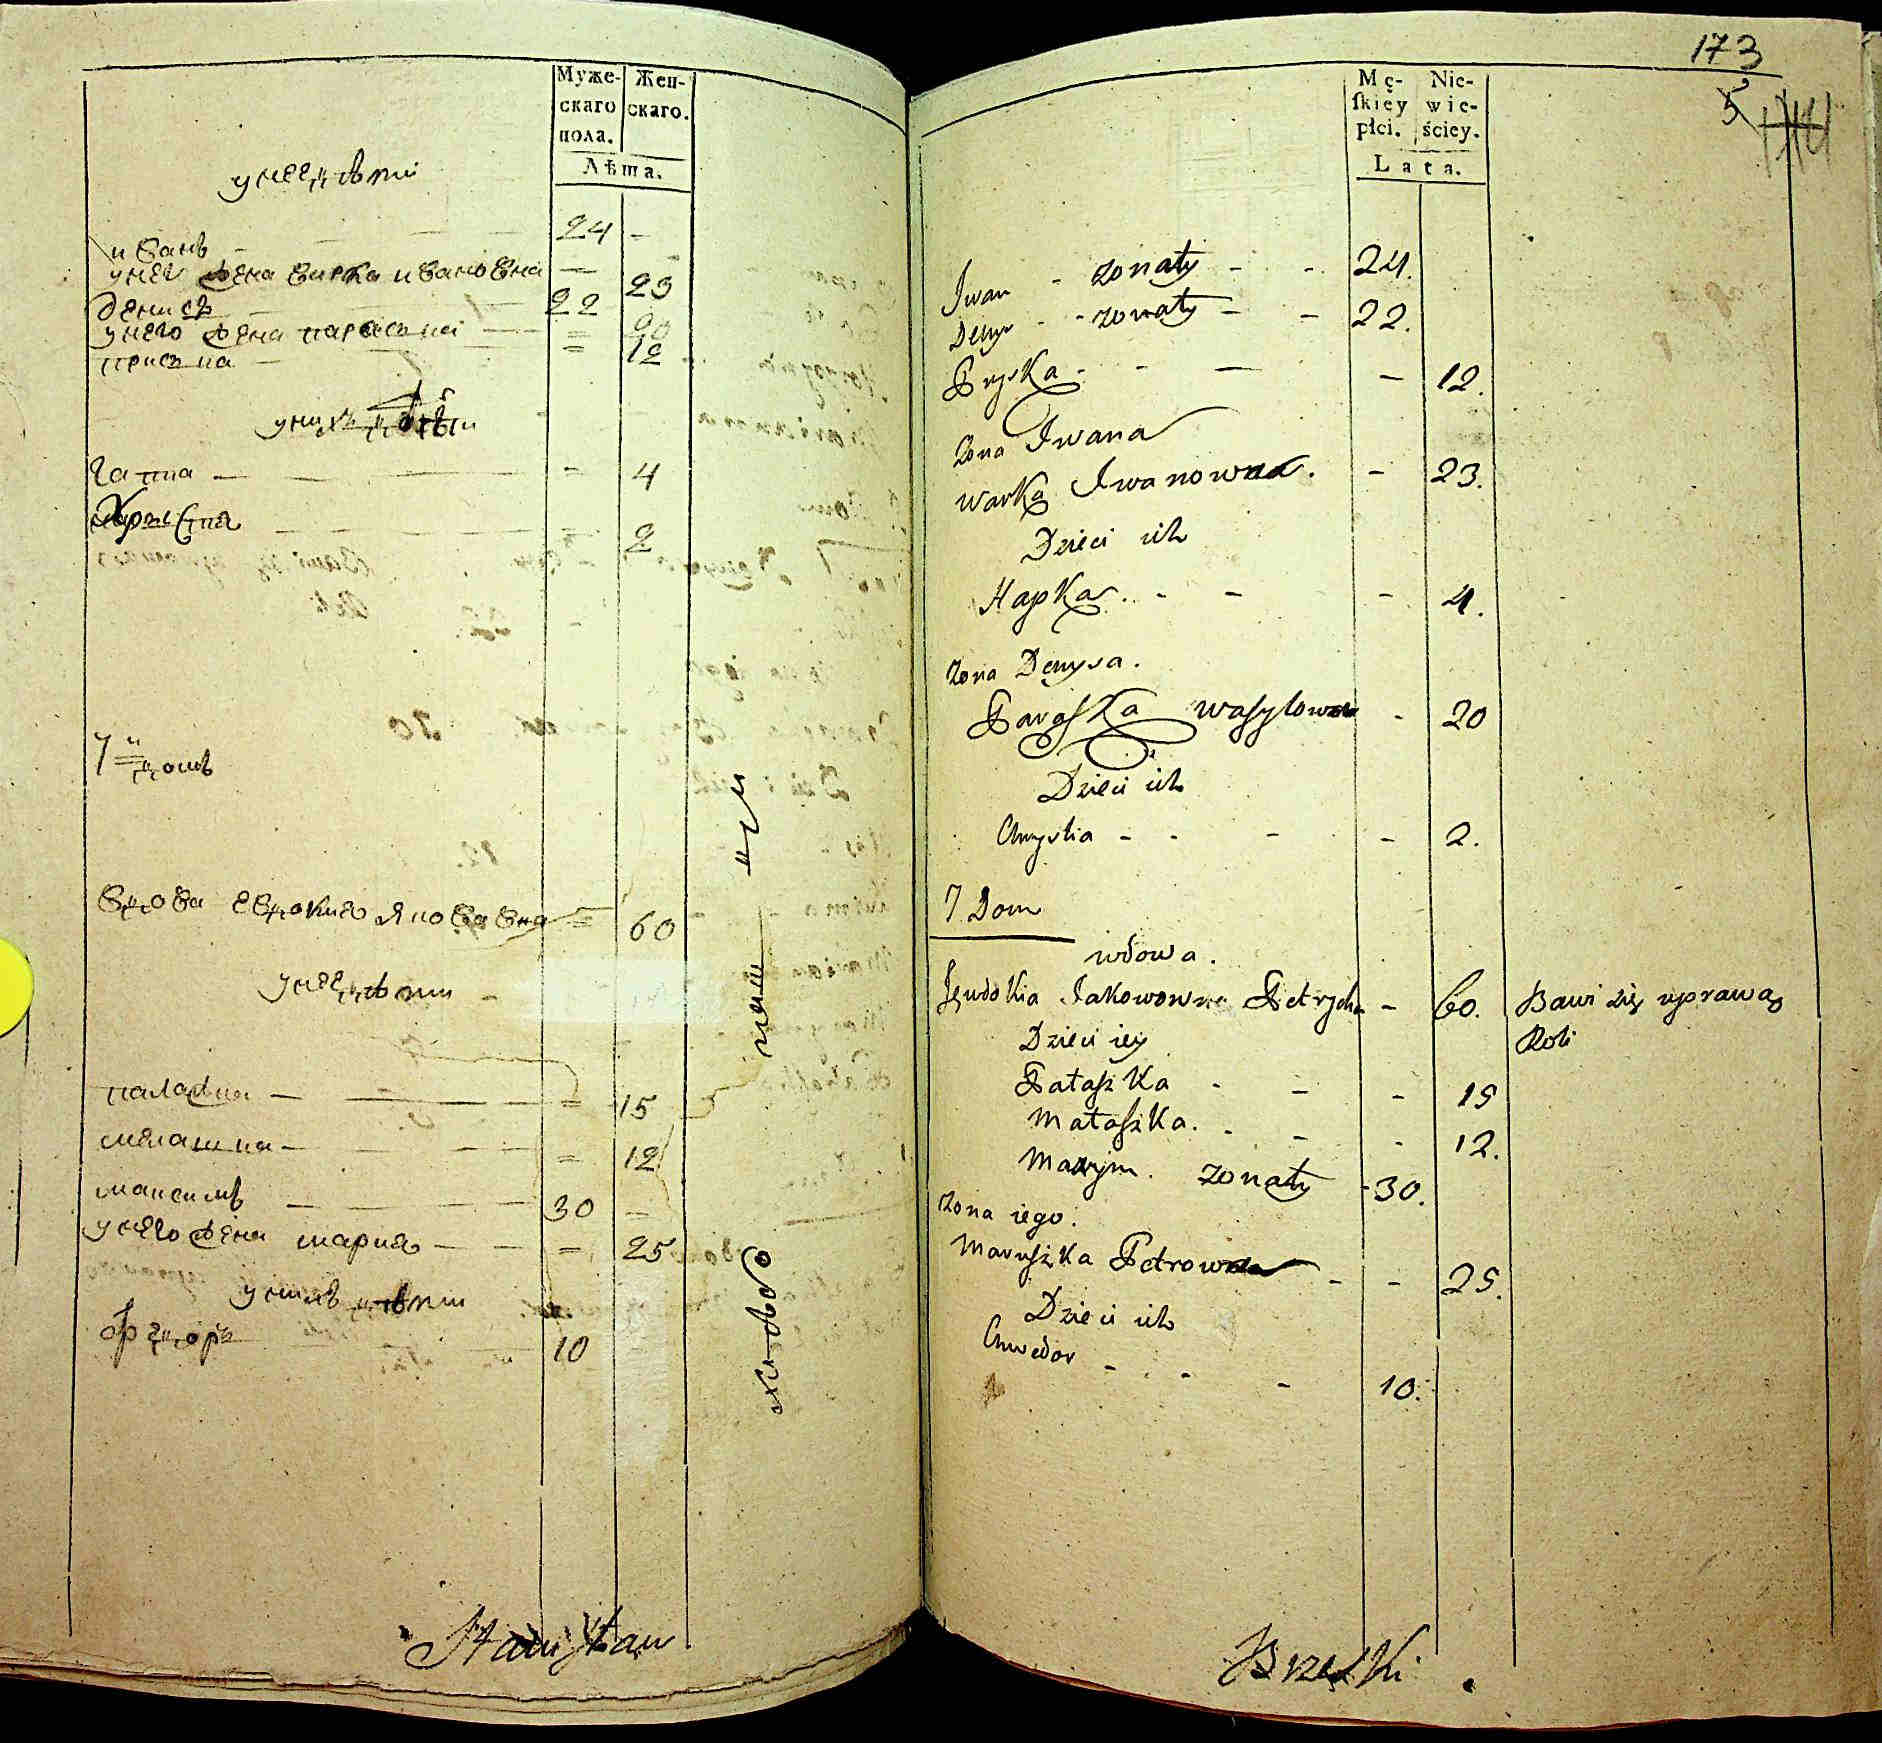 Муже-
скаго
пола.
Жен-
скаго.
Лѣта.
у нее дѣти
иванъ 24 -
у нево жена варка ивановна — 23
денисъ 22
у него жена параска = 20
приська — = 12
у нихъ дѣти
гапка — - 4
христя = 2
7 домъ
вдова евдокия яковавна = 60
у нее дѣти -
палашка — = 15
мелашка — = 12
максимъ 30 —
у него жена мария — = 25
у нихъ дѣти
фрдоръ 10
Stanisław
173
5
Mę-
ſkiey
płci.
Nie-
wie-
ściey.
Lata.
Iwan - zonaty - - 24.
Denys - - zonaty - - 22.
Pryska - - — — 12.
Zona Iwana
Warka Iwanowna. - 23.
Dzieci ich
Hapka. - - - 4.
Zona Denysa.
Paraſka Wasylowna - 20
Dzieci ich
Chrystia - - - - 2.
7 Dom
wdowa.
Jeudokia Jakowowna Petrycha - 60. Bawi się uprawą
Roli
Dzieci iey
Pałaszka - — - 15
Małaszka. - - - 12.
Maxym. zonaty - 30.
Zona iego.
Maruszka Petrowna - - 25.
Dzieci ich
Chwedor - - - 10.
Brzeski.